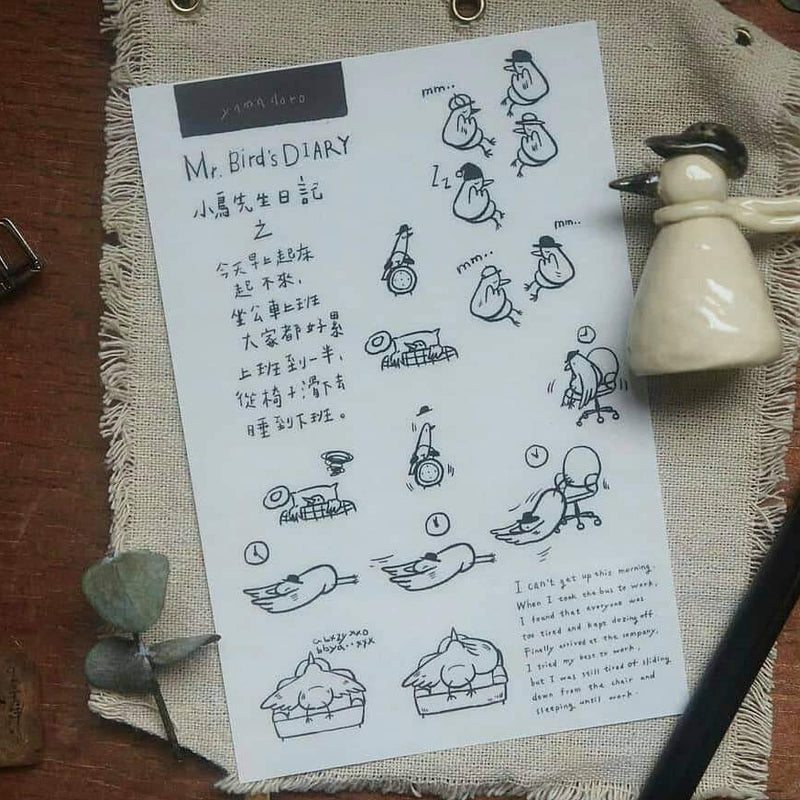 yamadoro
Mr. Bird's DIARY
小鳥先生日記
之
今天早上起床
起不來，
坐公車上班
大家都好累
上班到一半，
從椅子滑下去
睡到下班。
mm..
Zz
mm..
mm..
I can't get up this morning.
When I took the bus to work,
I found that everyone was
too tired and kept dozing off
Finally arrived at the company,
I tried my best to work,
but I was still tired of sliding
down from the chair and
sleeping until work.